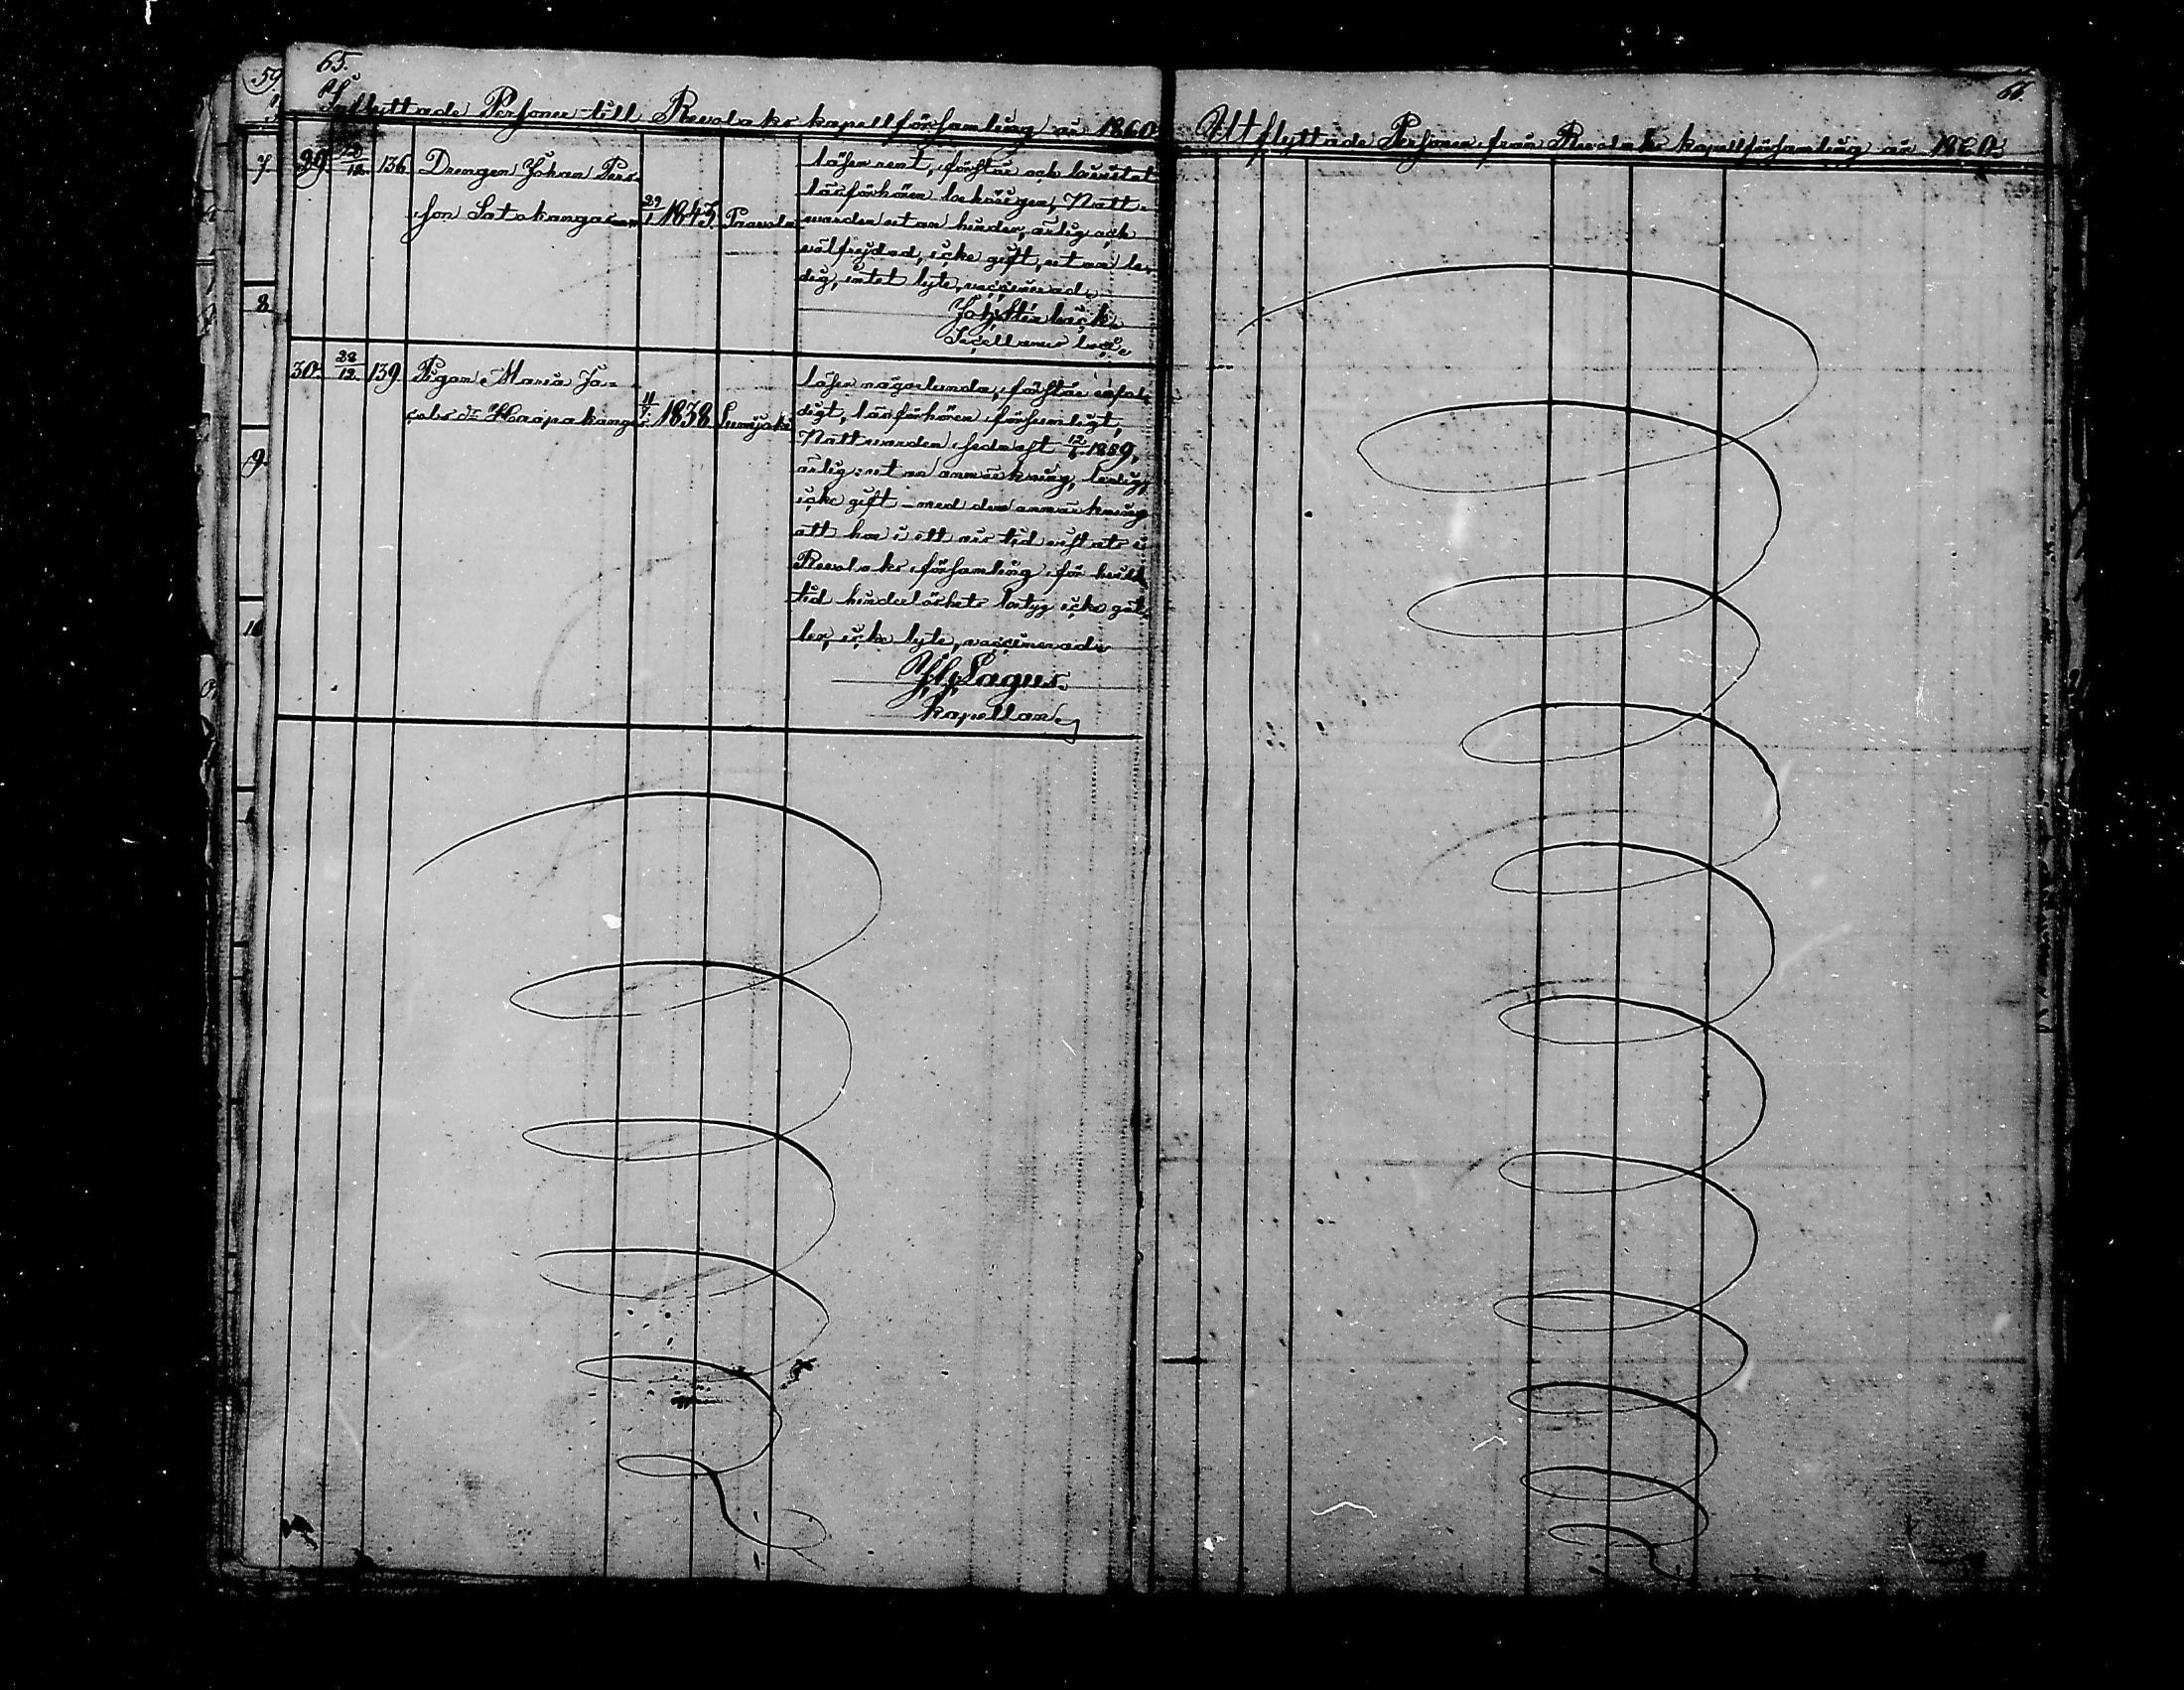 59
65.
Inflyttade Personer till Revolaks kapellförsamling år 1860.
7.
29 12. 136 Drengen Johan Pers-
son Satokangas 29/1. 1843. Paavola
läser rent, förstår och bevistat
läsförhören behörigen, Natt-
varden utan hinder, ärlig och
välfrejdad, icke gift, utan le-
dig, intet lyte, vaccinerad.
Joh. Sterbäck.
Sacellanus loci.
8.
30. 28/12. 139 Pigan Maria Ja-
cobs dr Haapakangas 11/7. 1838 Lumijoki
läser någorlunda, förstår enfal-
digt, läsförhören försumligt,
Nattvarden sednast 12/6. 1859,
ärlig: utan anmärkning, ledig,
icke gift – med den anmärkning
att hon i ett års tid vistats i
Revolaks församling för hvilken
tid hinderlöshets betyg icke gäl-
ler, icke lyte, vaccinerad.
Lagus.
Kapellan.
9.
10
66.
Utflyttade Personer från Revolaks kapellförsamling år 1860.